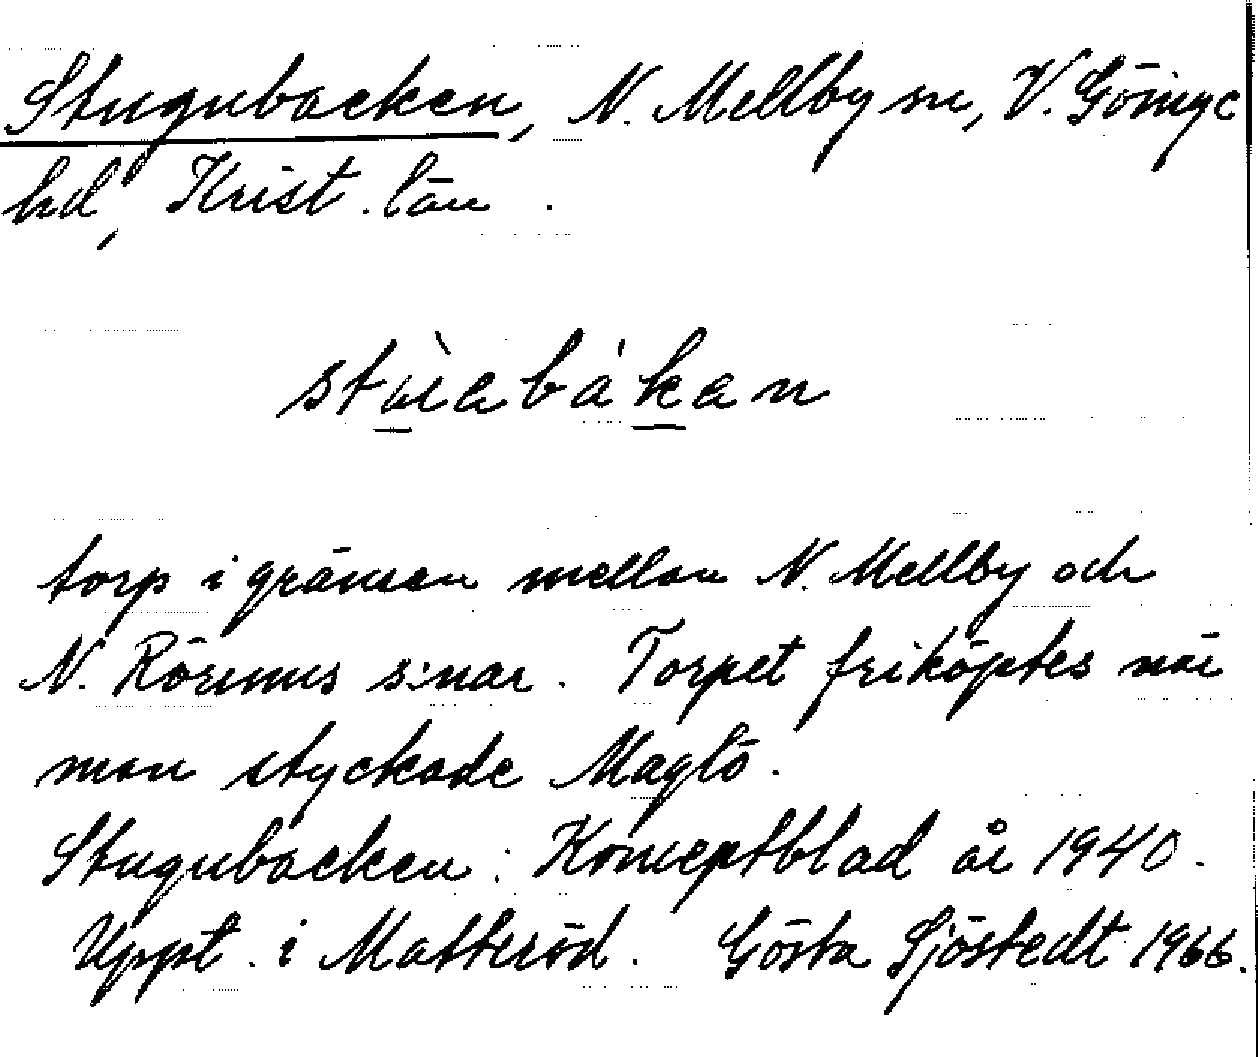 Stugubacken, N. Mellby sn, V. Göinge
hd, Krist. län.
torp i gränsen mellan N. Mellby och
N. Rörums s:nar. Torpet friköptes när
man styckade Maglö.
Stugubacken: Konceptblad år 1940.
Uppt. i Matteröd. Gösta Sjöstedt 1966.